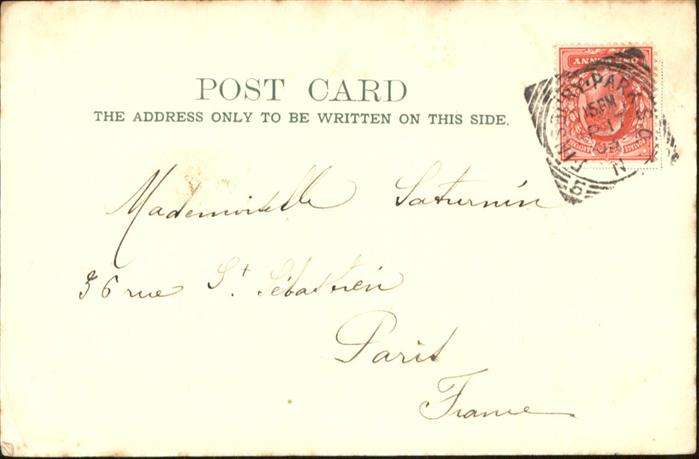 POST CARD
THE ADDRESS ONLY TO BE WRITTEN ON THIS SIDE.
ONE PENNY
FINSBURY-PARK S.O.
N
5
Mademoiselle Saturnin
36 rue St Sébastien
Paris
France